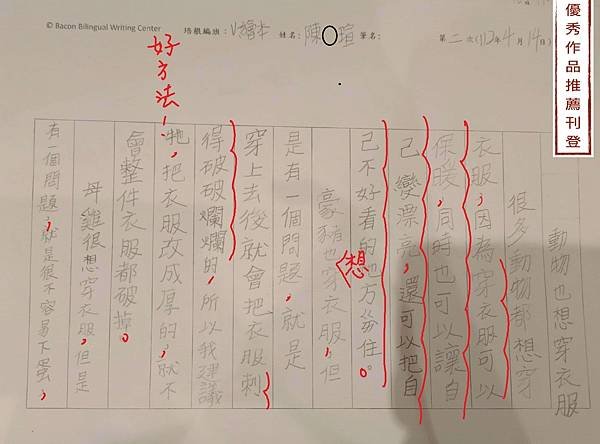 優秀作品推薦刊登
© Bacon Bilingual Writing Center 培根編班：V繪本 姓名：陳○瑄 筆名：
第二次(112年4月14日)
好方法！
動物也想穿衣服
很多動物都想穿
衣服，因為穿衣服可以
保暖，同時也可以讓自
己變漂亮，還可以把自
己不好看的地方蓋住。
豪豬也想穿衣服，但
是有一個問題，就是
穿上去後就會把衣服刺
得破破爛爛的，所以我建議
牠，把衣服改成厚的，就不
會整件衣服都破掉。
母雞很想穿衣服，但是
有一個問題，就是很不容易下蛋，